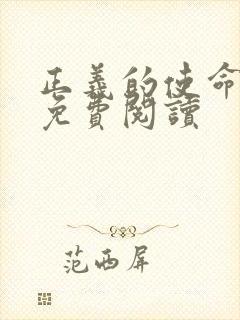 正義的使命
免費閱讀
范西屏